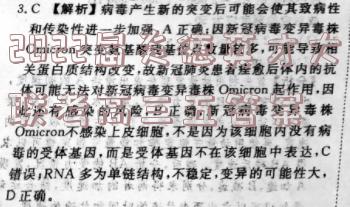 3. C 【解析】病毒产生新的突变后可能会使其致病性
和传染性进一步加强,A 正确;因新冠病毒变异毒株
Omicron 突变氨基酸残基位点数量较多,可能导致相
关蛋白质结构改变,故新冠肺炎患者痊愈后体内的抗
体可能无法对新冠病毒变异毒株 Omicron 起作用,因
此还有感染的风险,B 正确;新冠病毒变异毒株
Omicron不感染上皮细胞,不是因为该细胞内没有病
毒的受体基因,而是受体基因不在该细胞中表达,C
错误;RNA 多为单链结构,不稳定,变异的可能性大,
D 正确。
2022届炎德英才大
联考高三五答案